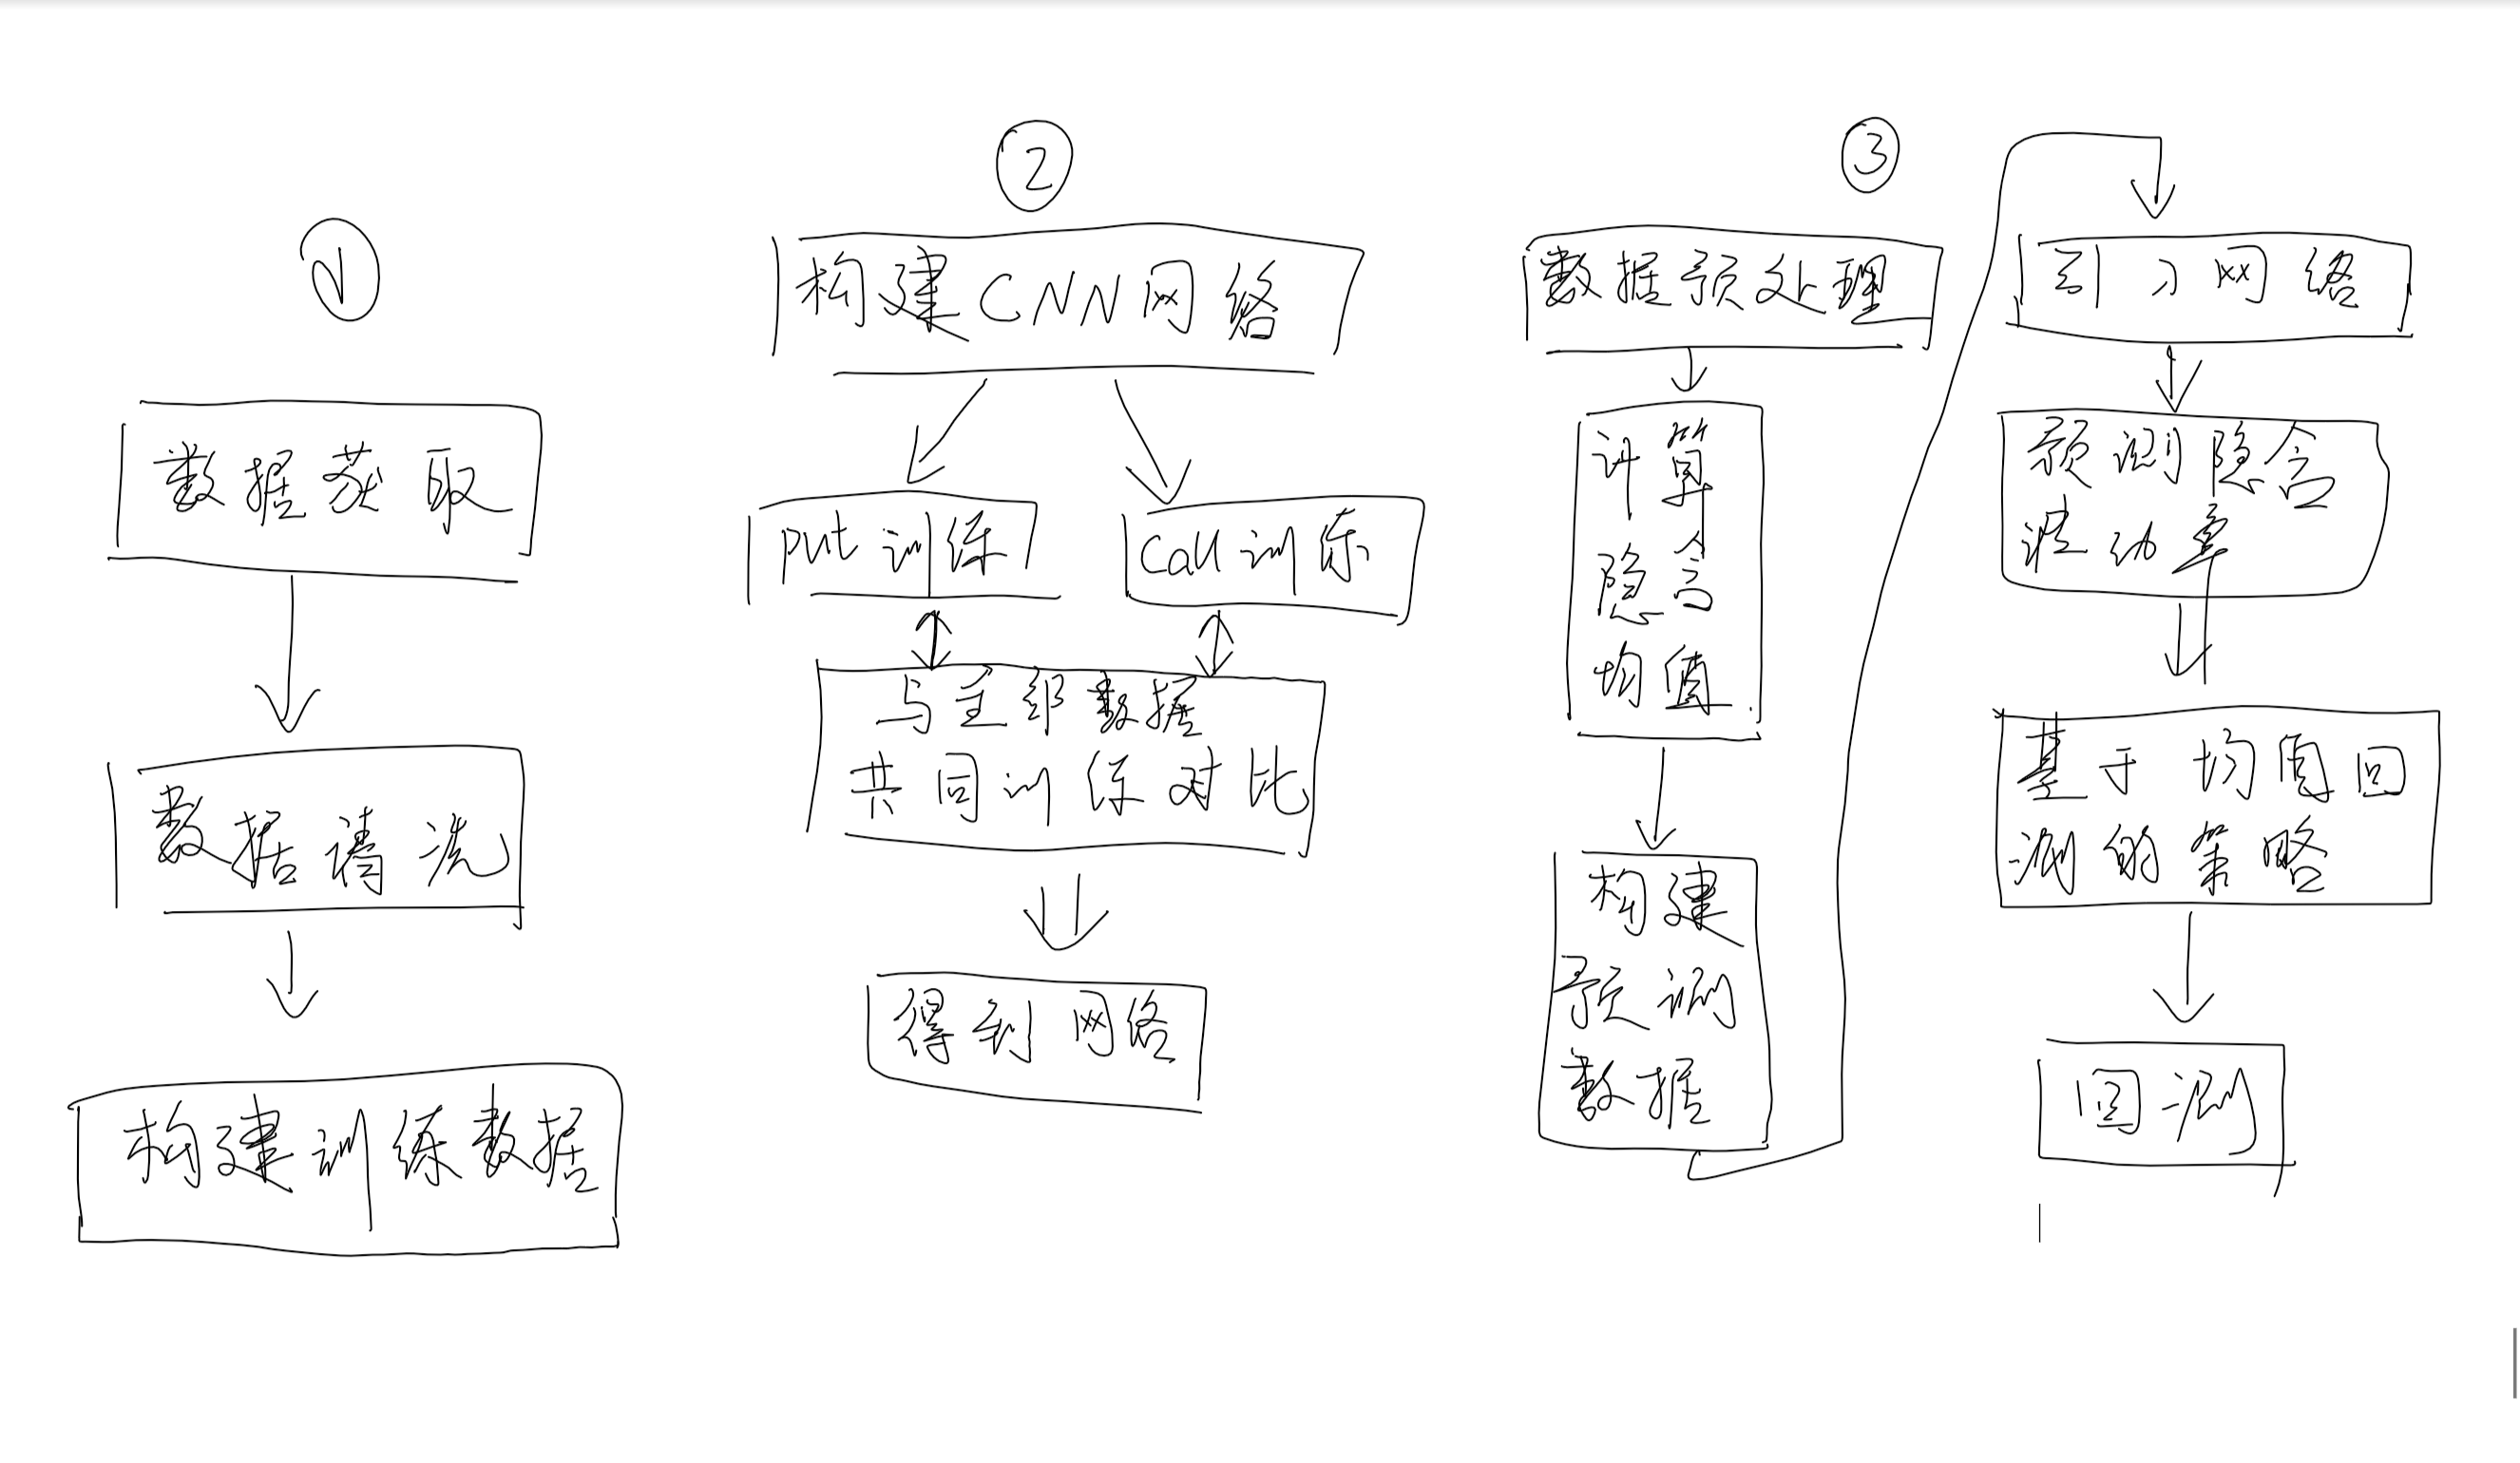 ①
数据获取
数据清洗
构建训练数据
②
构建CNN网络
put 训练
Call 训练
与全部数据
共同训练对比
得到网络
③
数据预处理
计算
隐含
均值
构建
预测
数据
引入网络
预测隐含
波动率
基于均值回
测的策略
回测